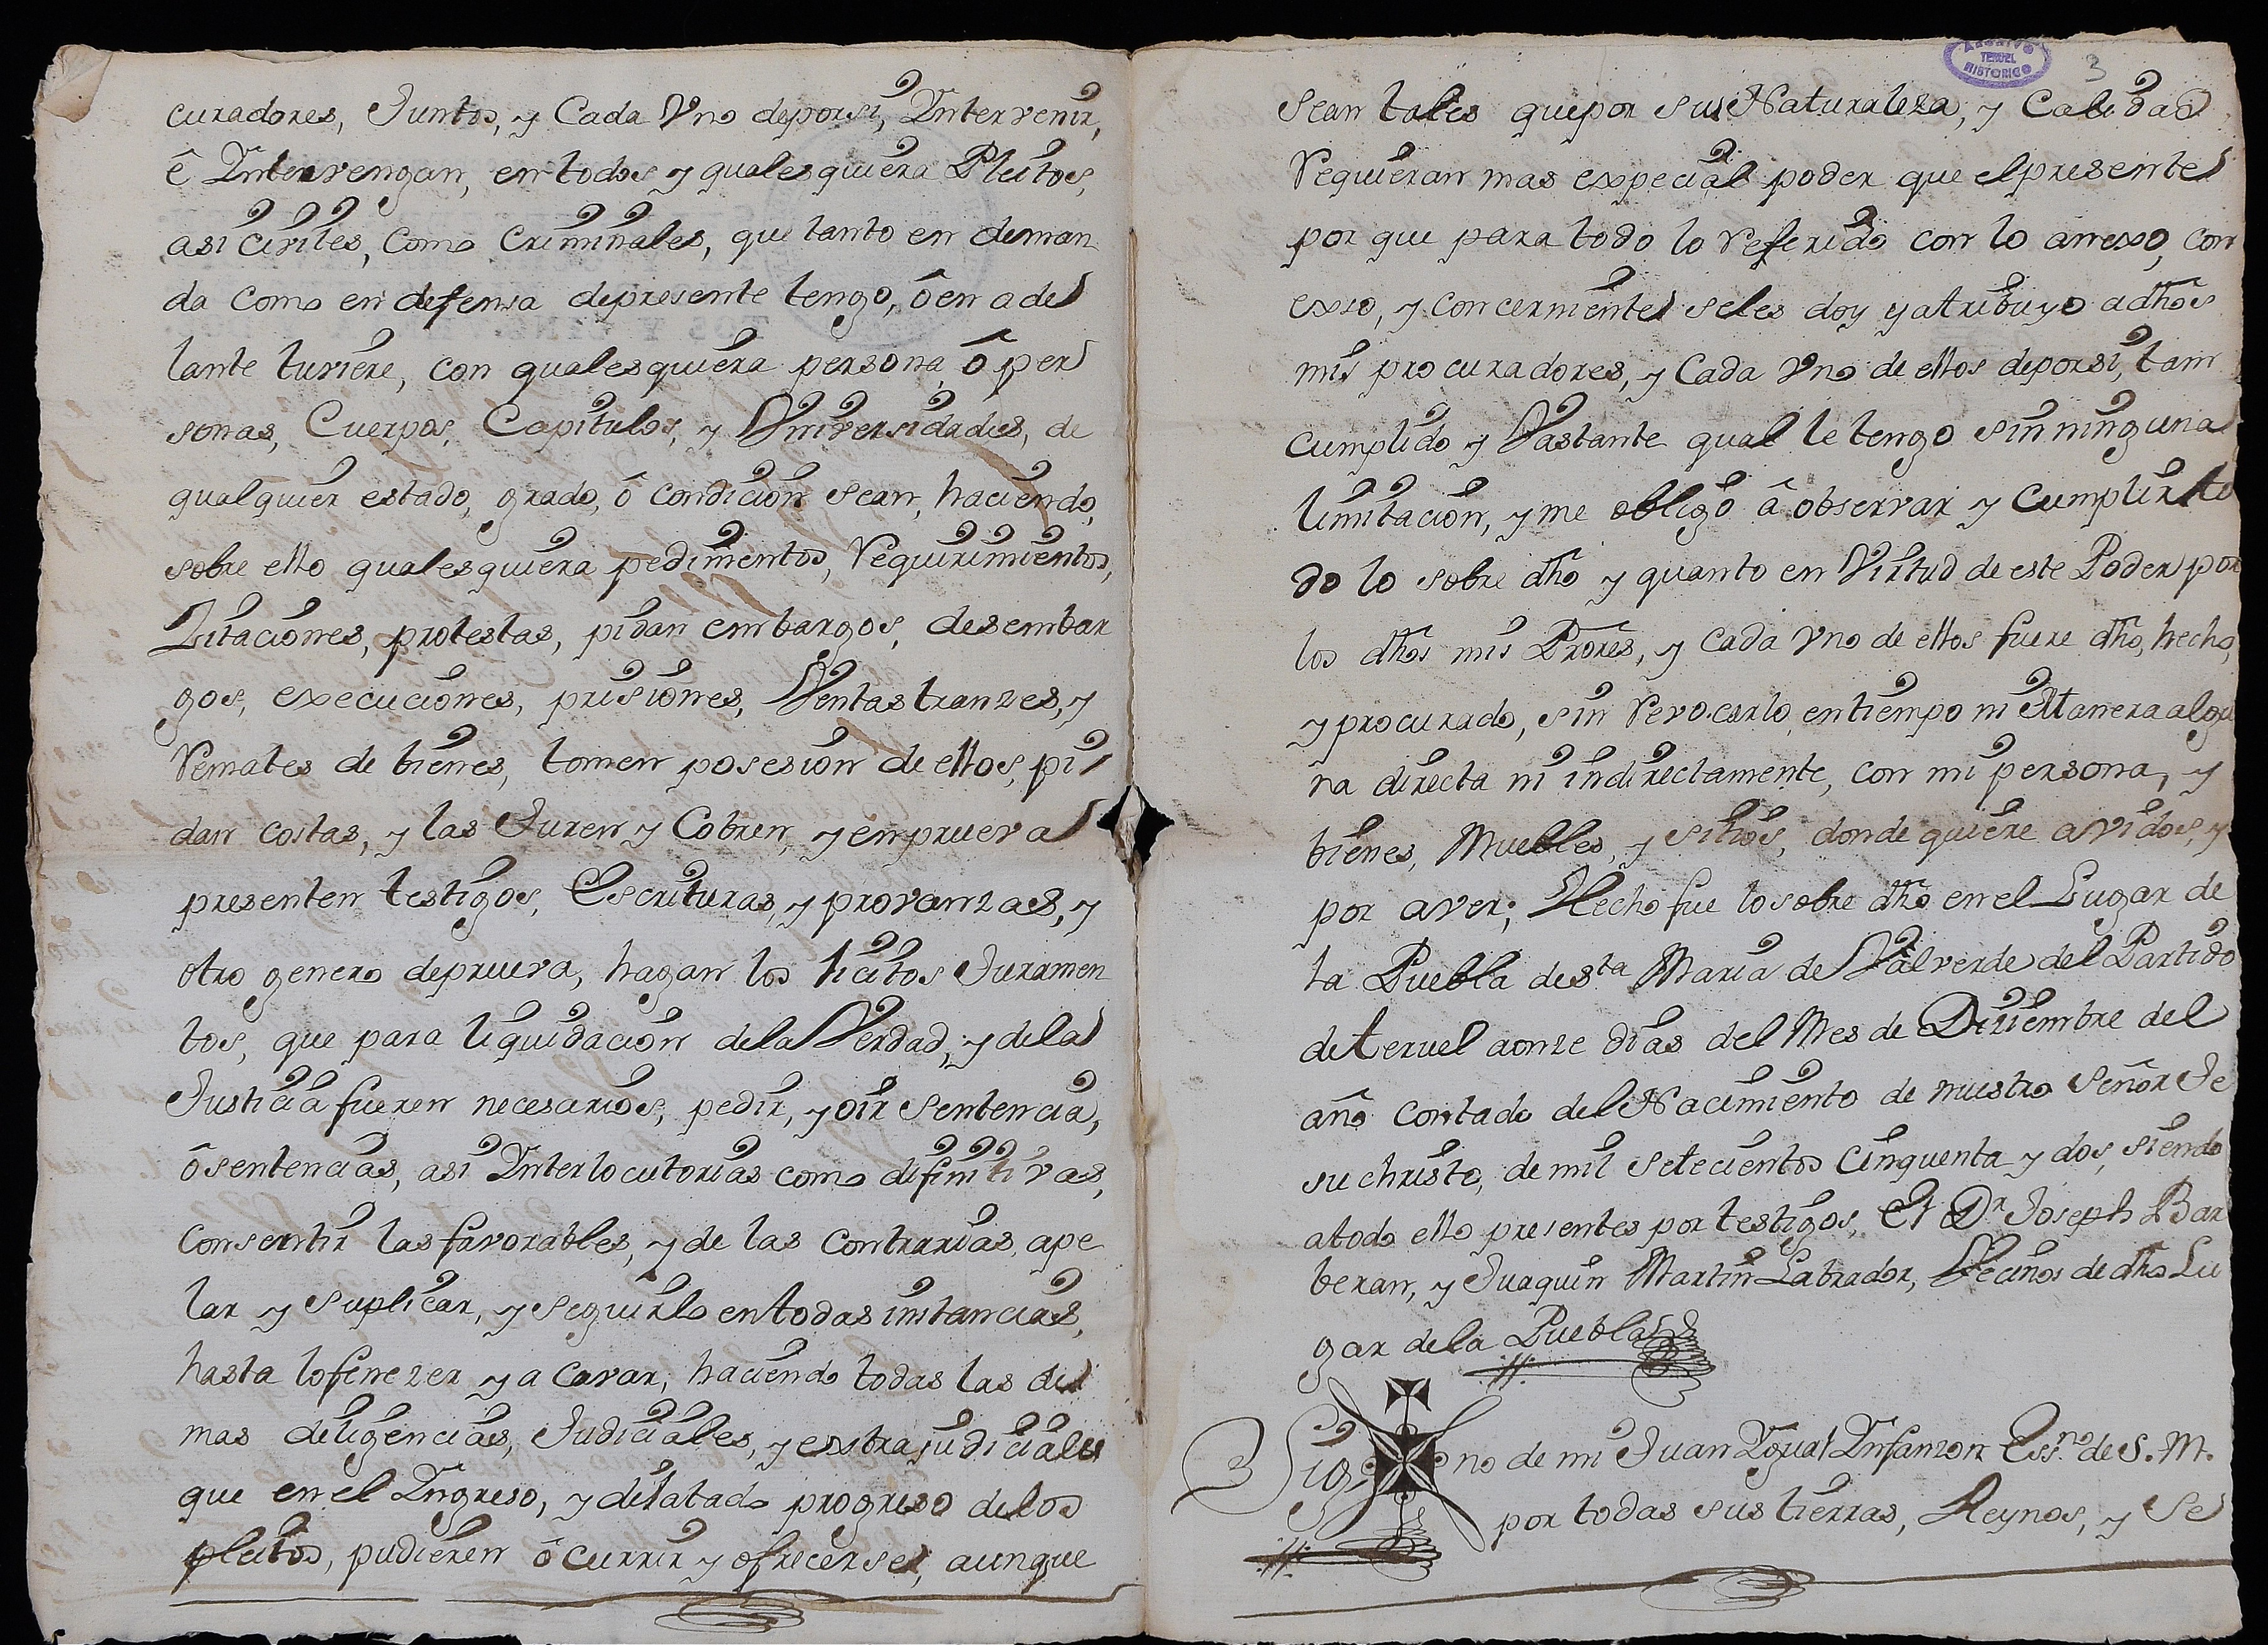 curadores, Juntos, y Cada Vno deporsi, Intervenir,
ê Intervengan, en todos y qualesquiera Pleitos,
asi civiles, como criminales, que tanto en deman
da como en defensa depresente tengo, ô en ade
lante tuviere, con qualesquiera persona, ô per
sonas, Cuerpos, Capitulos, y Vniversidades, de
qualquier estado, grado, ô condicion sean, haciendo,
sobre ello qualesquiera pedimentos, Requirimientos,
Zitaciones, protestas, pidan embargos, desembar
gos, execuciones, prisiones, Ventas tranzes, y
Remates de bienes, tomen posesion de ellos, pi
dan costas, y las Juren y Cobren, y en prueva
presenten testigos, Escrituras, y provanzas, y
otro genero deprueva, hagan los licitos Juramen
tos, que para liquidacion dela Verdad, y dela
Justicia fueren necesarios, pedir, y oir sentencia,
ô sentencias, asi Interlocutorias como difinitivas,
consentir las favorables, y de las contrarias, ape
lar y suplicar, y seguirlo en todas instancias,
hasta lo fenezer y acavar, haciendo todas las de
mas diligencias, Judiciales, y extrajudiciales
que en el Ingreso, y dilatado progreso delos
pleitos, pudieren ôcurrir y ofrecerse, aunque
Archivo
TERUEL
HISTORICO
3
Sean tales quepor su Naturaleza, y Calidad
Requieran mas expecial poder que el presente
por que para todo lo Referido con lo annexo, con
exso, y concerniente seles doy y atribuyo a dhos
mis procuradores, y Cada Vno de ellos deporsi, tam
cumplido y Vastante qual le tengo sin ninguna
limitacion, y me obligo â observar y cumplir to
do lo sobre dho y quanto en Virtud de este Poder por
los dhos mis Prores, y cada Vno de ellos fuere dho, hecho,
y procurado, sin Revocarlo en tiempo ni Manera algu
na directa ni indirectamente, con mi persona, y
bienes, Muebles, y sitios, donde quiere avidos, y
por aver; Hecho fue lo sobre dho en el Lugar de
la Puebla de Sta Maria de Valverde del Partido
de teruel a onze dias del Mes de Diziembre del
año contado del Nacimiento de nuestro Señor Je
suchristo, de mil setecientos cinquenta y dos, siendo
atodo ello presentes por testigos, El Dr Joseph Bar
beran, y Juaquin Martin Labrador, Vecinos de dho Lu
gar dela Puebla
Sig no de mi Juan Igual Infanzon Essno de S. M.
por todas sus tierras, Reynos, y Se